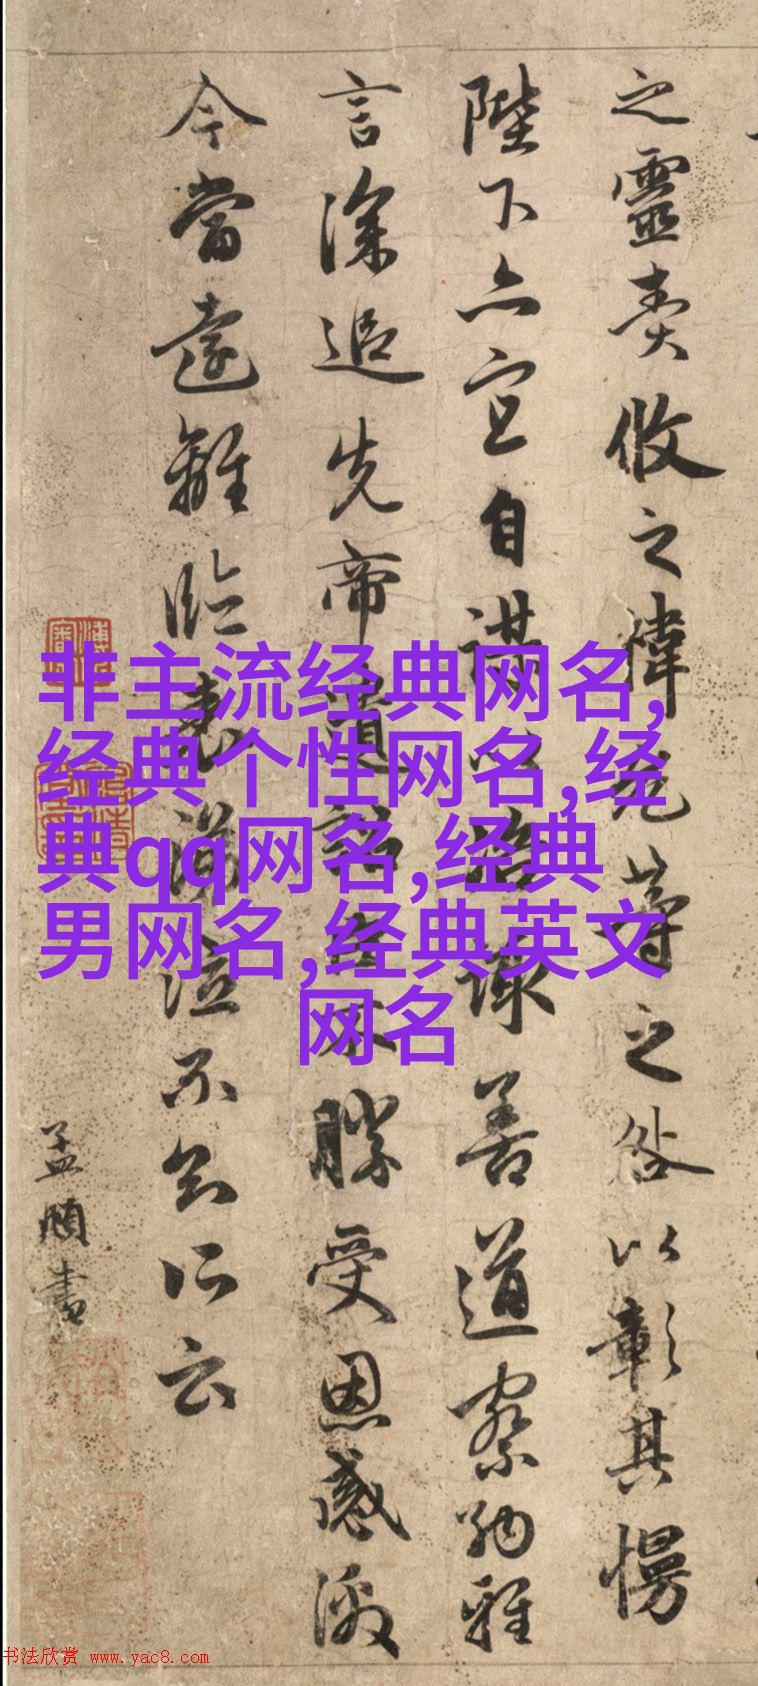 之靈責攸之禕允等之咎以彰其慢
陛下亦宜自謀以諮諏善道察納雅
言深追先帝遺詔臣不勝受恩感激
今當遠離臨表涕泣不知所云
孟頫書
非主流经典网名,
经典个性网名,经
典qq网名,经典
男网名,经典英文
网名
书法欣赏 www.yac8.com